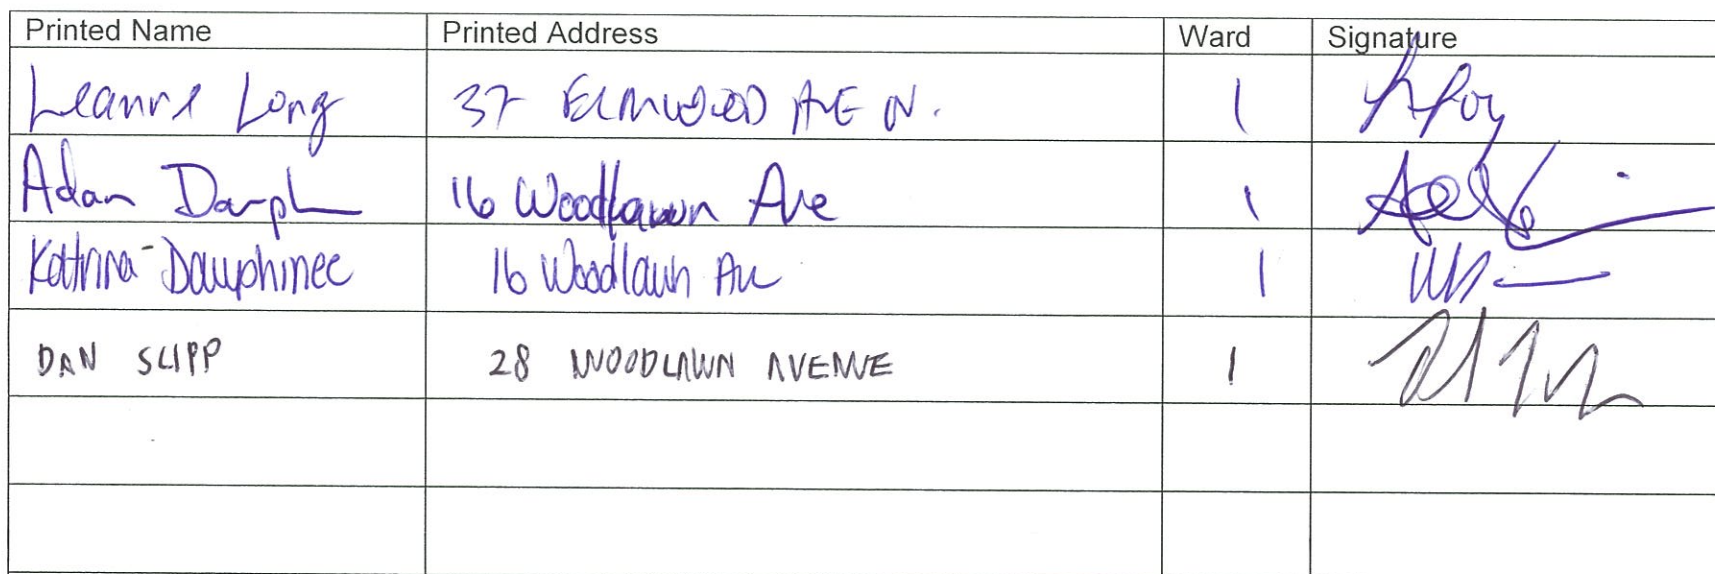 Printed Name Printed Address Ward Signature
Leanne Long 37 ELMWOOD AVE N. 1
Adam 16 Woodlawn Ave 1
Katrina Dauphinee 16 Woodlawn Ave 1
DAN SLIPP 28 WOODLAWN AVENUE 1